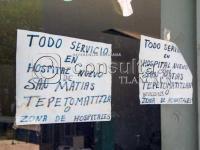 TODO SERVICIO
EN
HOSPITAL NUEVO
SAN MATIAS
TEPETOMATITLA
O
ZONA DE HOSPITALES
TODO SERVI
EN
HOSPITAL NUEVO
SAN MATIAS
TEPETOMATITLA
O
ZONA DE HOSPITALES
e-consulta
TLAXCALA